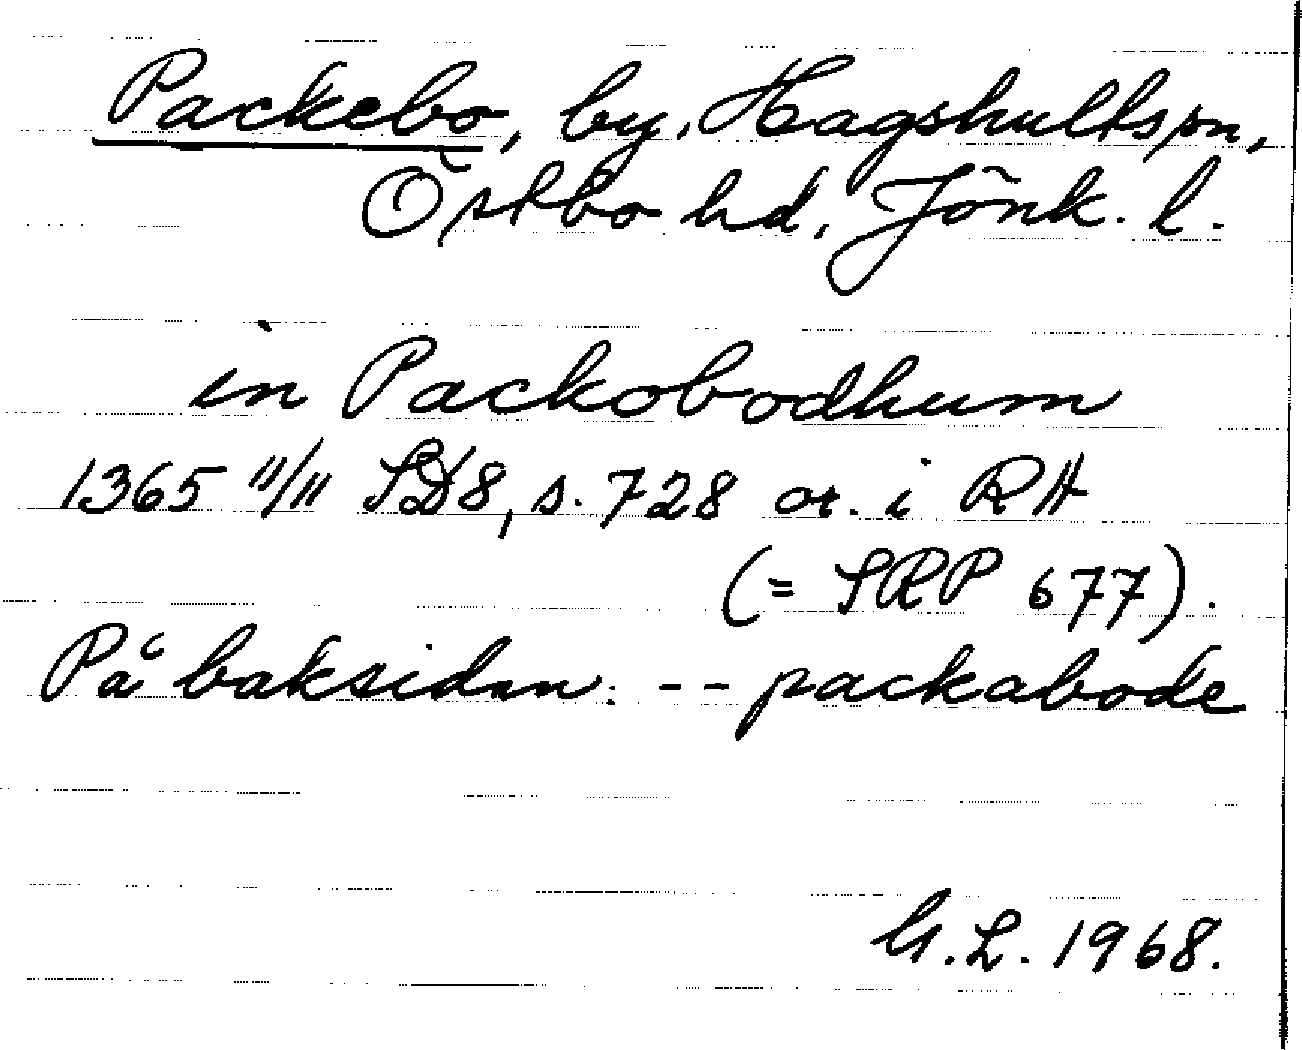 Packebo, by, Hagshults sn,
Östbo hd, Jönk. l.
in Packobodhum
1365 11/11 SD8, s. 728 or. i RA
(= SRP 677).
På baksidan: -- packabode
G.L. 1968.